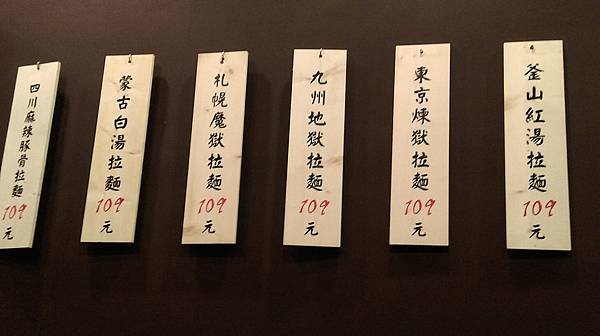 四川麻辣豚骨拉麵109元
蒙古白湯拉麵109元
札幌魔獄拉麵109元
九州地獄拉麵109元
東京煉獄拉麵109元
釜山紅湯拉麵109元